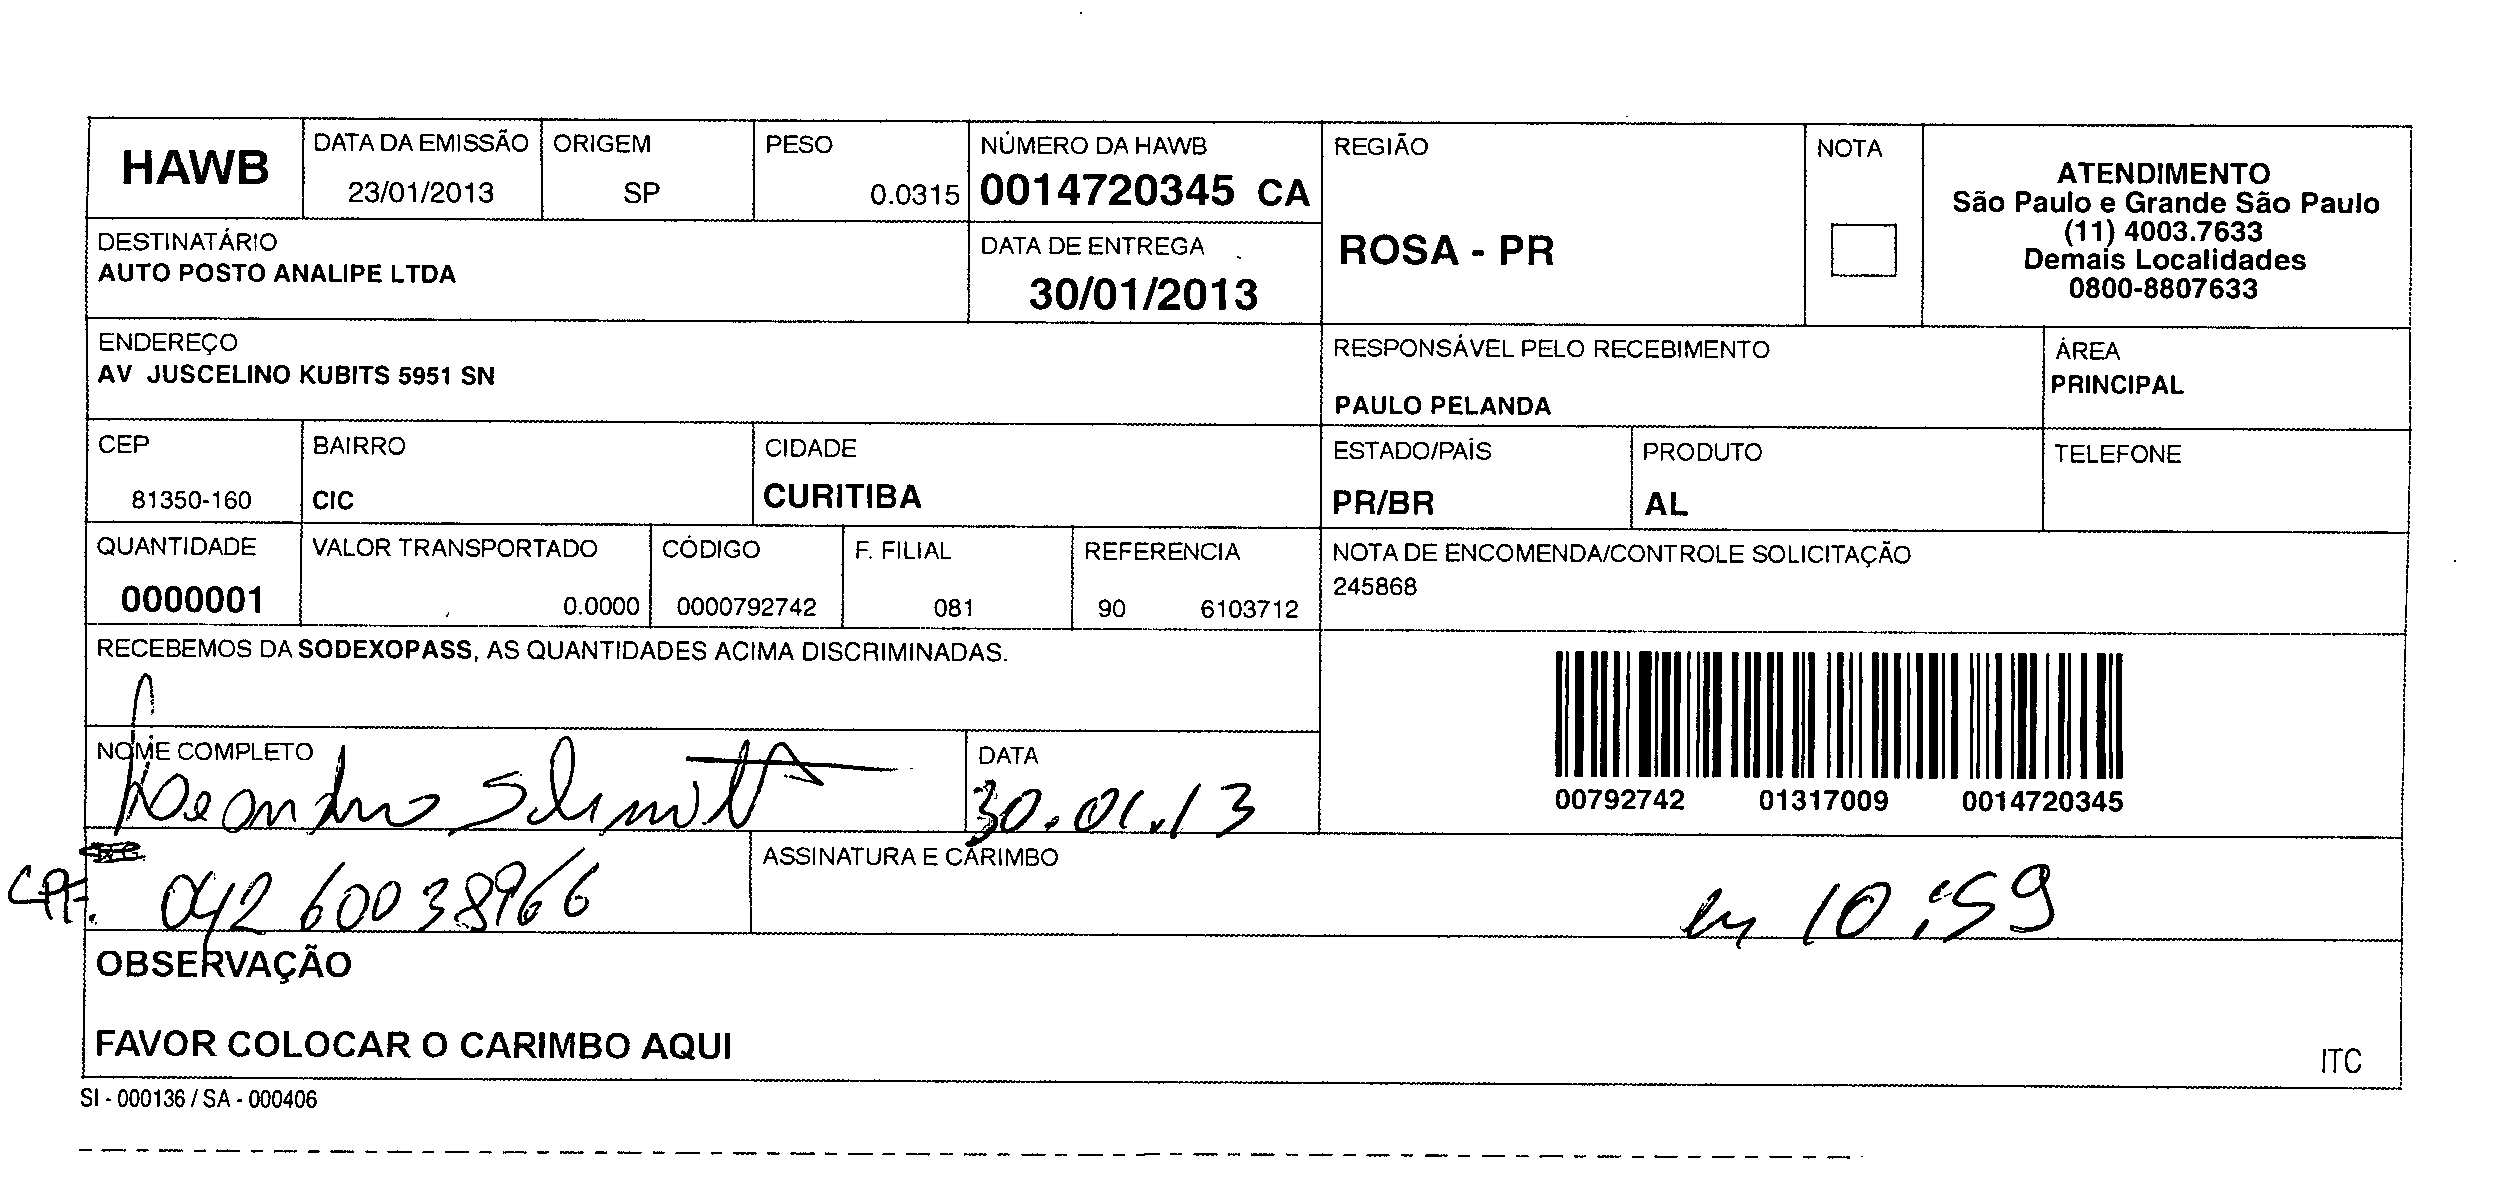 HAWB
DATA DA EMISSÃO
23/01/2013
ORIGEM
SP
PESO
0.0315
NÚMERO DA HAWB
0014720345 CA
REGIÃO
ROSA - PR
NOTA
ATENDIMENTO
São Paulo e Grande São Paulo
(11) 4003.7633
Demais Localidades
0800-8807633
DESTINATÁRIO
AUTO POSTO ANALIPE LTDA
DATA DE ENTREGA
30/01/2013
ENDEREÇO
AV JUSCELINO KUBITS 5951 SN
RESPONSÁVEL PELO RECEBIMENTO
PAULO PELANDA
ÁREA
PRINCIPAL
CEP
81350-160
BAIRRO
CIC
CIDADE
CURITIBA
ESTADO/PAÍS
PR/BR
PRODUTO
AL
TELEFONE
QUANTIDADE
0000001
VALOR TRANSPORTADO
0.0000
CÓDIGO
0000792742
F. FILIAL
081
REFERENCIA
90 6103712
NOTA DE ENCOMENDA/CONTROLE SOLICITAÇÃO
245868
RECEBEMOS DA SODEXOPASS, AS QUANTIDADES ACIMA DISCRIMINADAS.
00792742 01317009 0014720345
NOME COMPLETO
Leandro Schmitt
DATA
30.01.13
CPF. 04260038966
ASSINATURA E CARIMBO
10:59
OBSERVAÇÃO
FAVOR COLOCAR O CARIMBO AQUI
ITC
SI - 000136 / SA - 000406